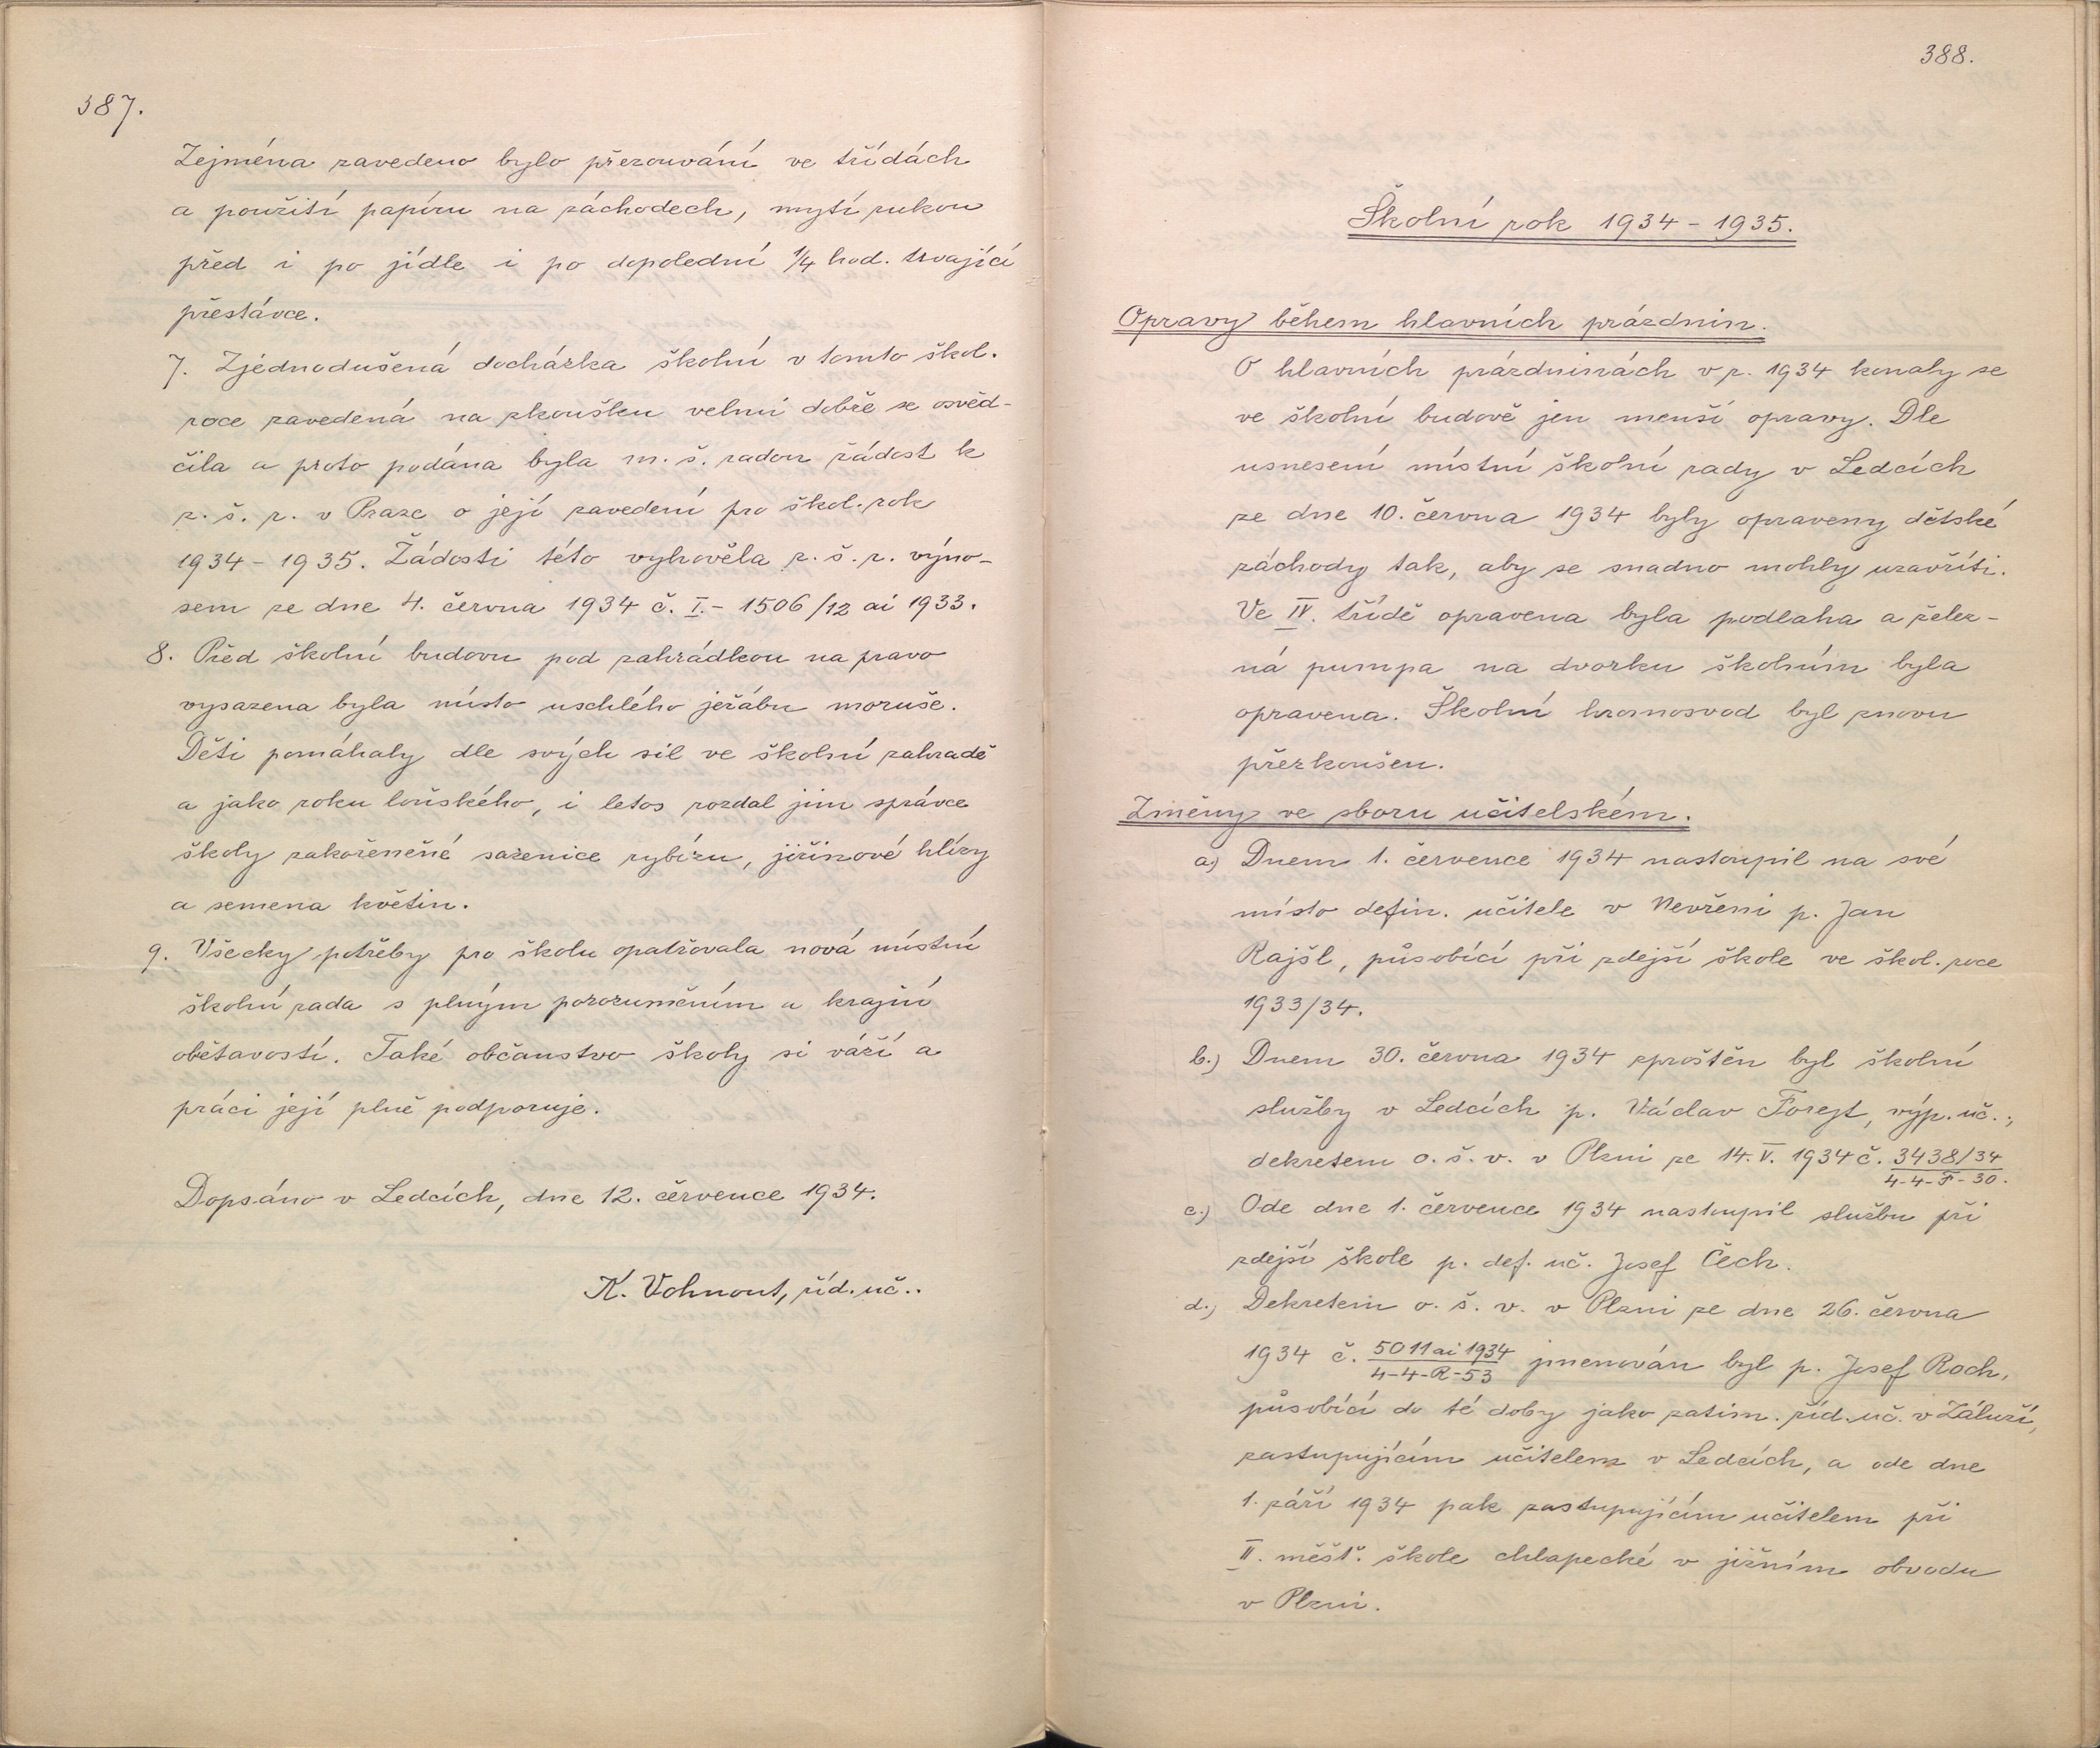 387.
Zejména zavedeno bylo přezouvání ve třídách
a použití papíru na záchodech, mytí rukou
před i po jídle i po dopolední 1/4 hod. trvající
přestávce.
7. Zjednodušená docházka školní v tomto škol.
roce zavedená na zkoušku velmi dobře se osvěd-
čila a proto podána byla m. š. radou žádost k
z. š. r. v Praze o její zavedení pro škol. rok
1934 - 1935. Žádosti této vyhověla z. š. r. výno-
sem ze dne 4. června 1934 č. I. - 1506/12 ai 1933.
8. Před školní budovu pod zahrádkou na pravo
vysazena byla místo uschlého jeřábu moruše.
Děti pomáhaly dle svých sil ve školní zahradě
a jako roku loňského, i letos rozdal jim správce
školy zakořeněné sazenice rybízu, jiřinové hlízy
a semena květin.
9. Všecky potřeby pro školu opatřovala nová místní
školní rada s plným porozuměním a krajní
obětavostí. Také občanstvo školy si váží a
práci její plně podporuje.
Dopsáno v Ledcích, dne 12. července 1934.
K. Vohnout, říd. uč..
388.
Školní rok 1934 - 1935.
Opravy během hlavních prázdnin.
O hlavních prázdninách v r. 1934 konaly se
ve školní budově jen menší opravy. Dle
usnesení místní školní rady v Ledcích
ze dne 10. června 1934 byly opraveny dětské
záchody tak, aby se snadno mohly uzavříti.
Ve IV. třídě opravena byla podlaha a želez-
ná pumpa na dvorku školním byla
opravena. Školní hromosvod byl znovu
přezkoušen.
Změny ve sboru učitelském.
a.) Dnem 1. července 1934 nastoupil na své
místo defin. učitele v Nevřeni p. Jan
Rajšl, působící při zdejší škole ve škol. roce
1933/34.
b.) Dnem 30. června 1934 zproštěn byl školní
služby v Ledcích p. Václav Forejt, výp. uč.,
dekretem o. š. v. v Plzni ze 14. V. 1934 č. 3438/34
4-4-F-30.
c.) Ode dne 1. července 1934 nastoupil službu při
zdejší škole p. def. uč. Josef Čech.
d.) Dekretem o. š. v. v Plzni ze dne 26. června
1934 č. 5011 ai 1934 / 4-4-R-53 jmenován byl p. Josef Roch,
působící do té doby jako zatím. říd. uč. v Záluží,
zastupujícím učitelem v Ledcích, a ode dne
1. září 1934 pak zastupujícím učitelem při
II. měšť. škole chlapecké v jižním obvodu
v Plzni.